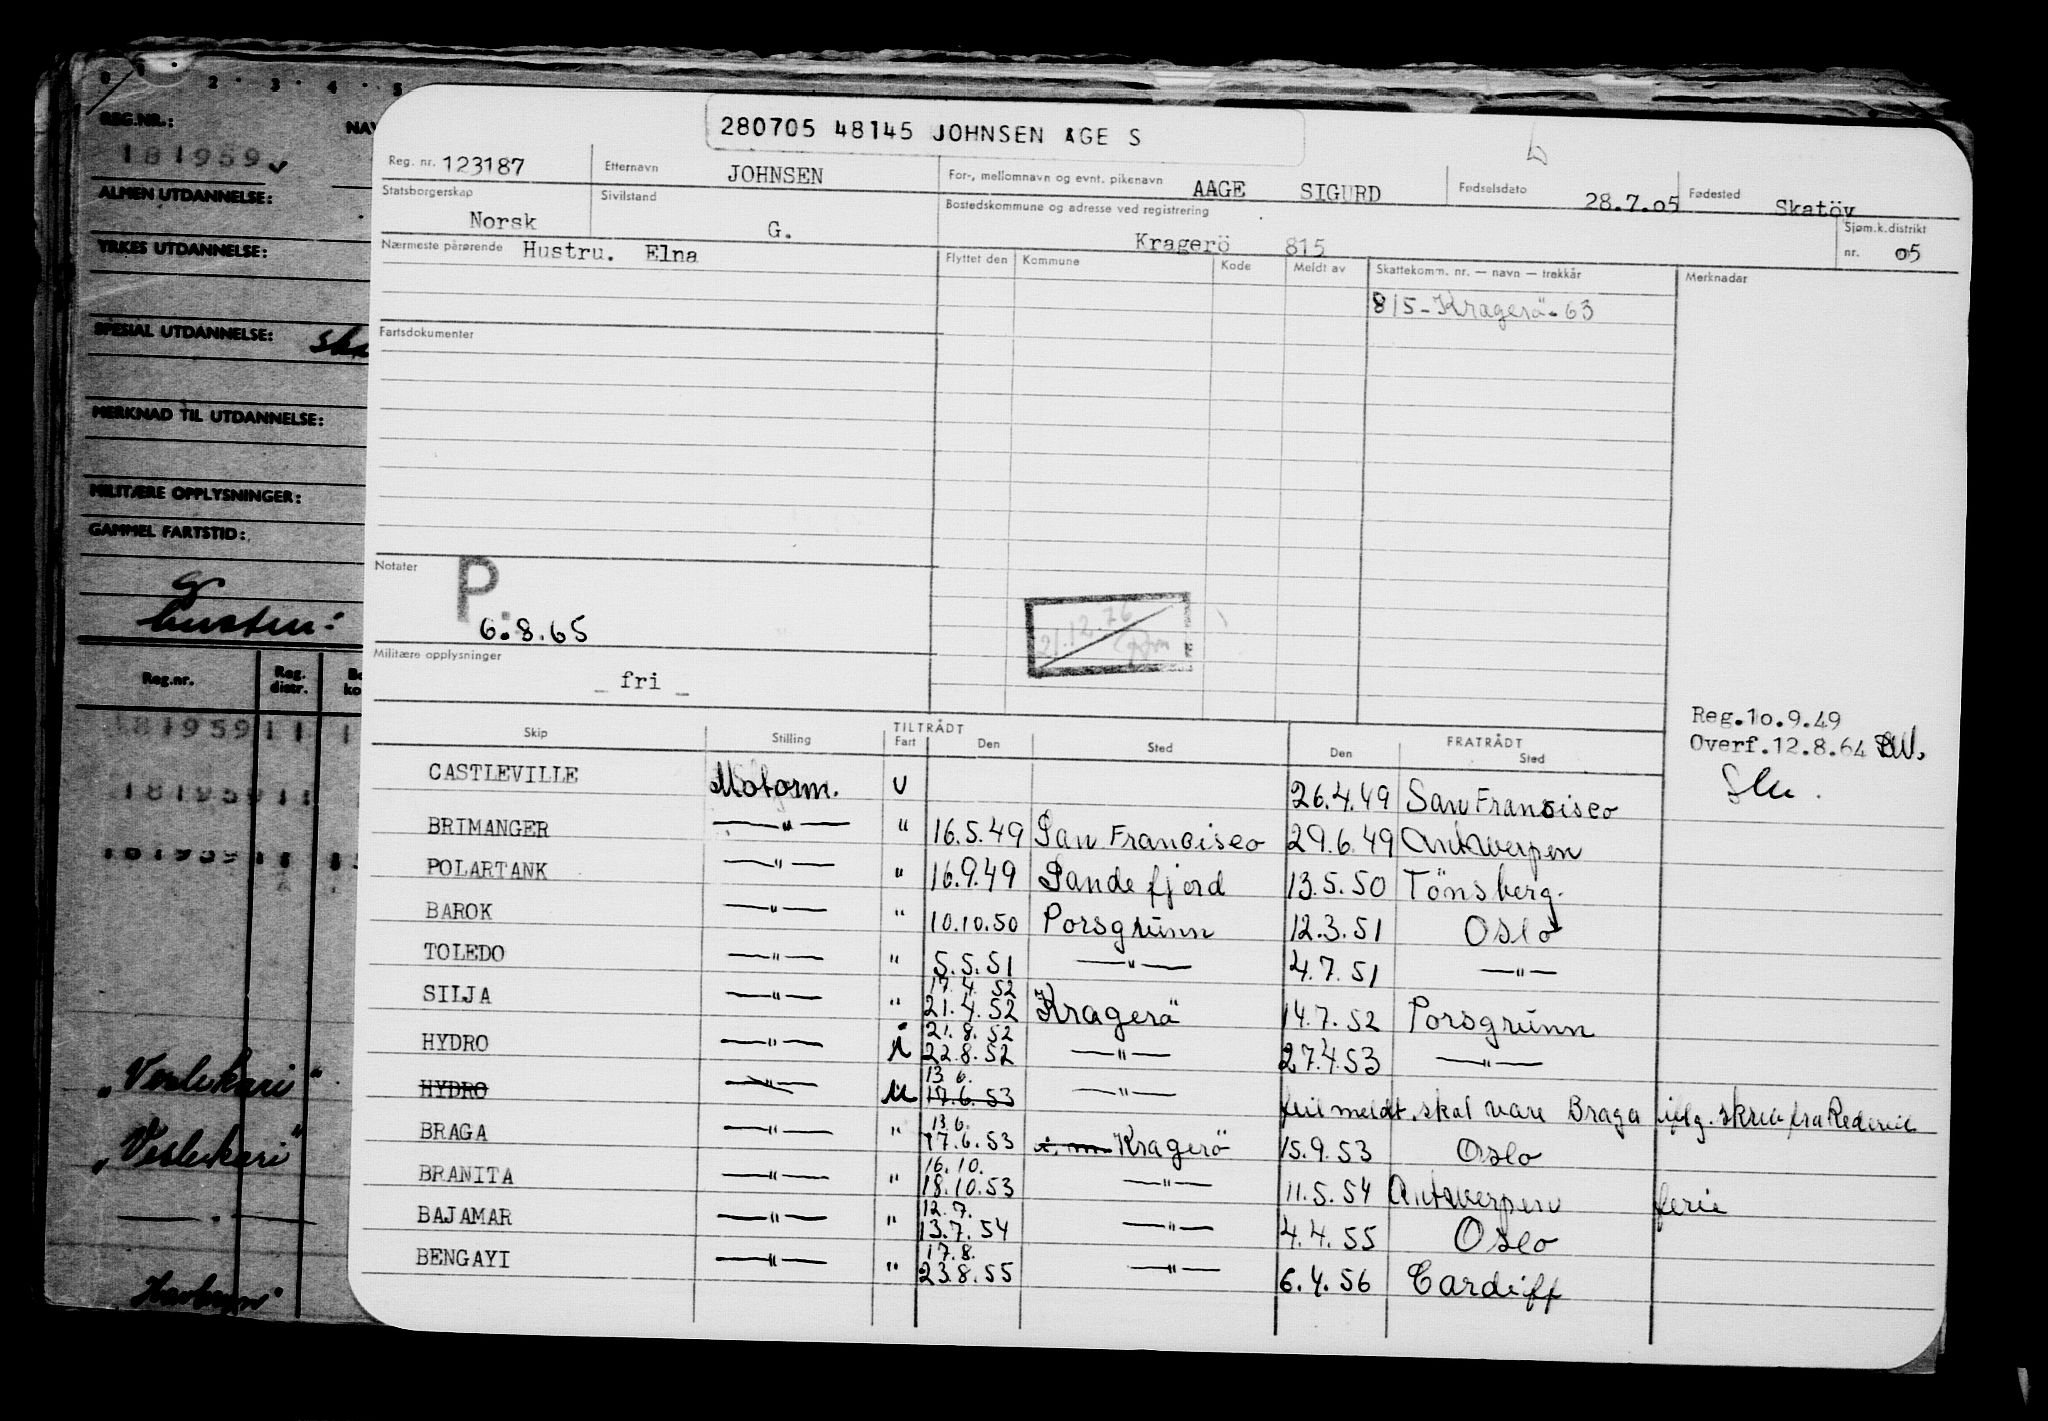 0 1 2 3 4 5
REG.NR.:
181959
ALMEN UTDANNELSE:
YRKES UTDANNELSE:
SPESIAL UTDANNELSE:
MERKNAD TIL UTDANNELSE:
MILITÆRE OPPLYSNINGER:
GAMMEL FARTSTID:
Reg.nr. Reg. distr.
181959 11 1
181959 11
181959 11
"Veslekari"
"Veslekari"
— " —
280705 48145 JOHNSEN AGE S
Reg. nr. 123187 Etternavn JOHNSEN For-, mellomnavn og evnt. pikenavn AAGE SIGURD Fødselsdato 28.7.05 Fødested Skatöy
Statsborgerskap Norsk Sivilstand G. Bostedskommune og adresse ved registrering Kragerö 815 Sjøm.k.distrikt nr. 05
Nærmeste pårørende Hustru. Elna Flyttet den Kommune Kode Meldt av Skattekomm. nr. — navn — trekkår Merknadar
815-Kragerö-63
Fartsdokumenter
Notater P.
6.8.65
21.12.76
Militære opplysninger
_ fri _
Reg.10.9.49
Overf.12.8.64
Skip Stilling TILTRÅDT Fart Den Sted FRATRÅDT Den Sted
CASTLEVILLE Motorm. U 26.4.49 San Francisco
BRIMANGER — " — " 16.5.49 San Francisco 29.6.49 Antwerpen
POLARTANK — " — " 16.9.49 Sandefjord 13.5.50 Tönsberg.
BAROK — " — " 10.10.50 Porsgrunn 12.3.51 Oslo
TOLEDO — " — " 5.5.51 — " — 4.7.51 — " —
SILJA — " — " 17.4.52 21.4.52 Kragerö 14.7.52 Porsgrunn
HYDRO — " — i 21.8.52 22.8.52 — " — 27.4.53 — " —
HYDRO — " — u 13.6. 17.6.53 — " — feil meldt. skal vare Braga iflg. skriv fra Rederiet
BRAGA — " — " 13.6. 17.6.53 Kragerö 15.9.53 Oslo
BRANITA — " — " 16.10. 18.10.53 — " — 11.5.54 Antwerpen ferie
BAJAMAR — " — " 12.7. 13.7.54 — " — 4.4.55 Oslo
BENGAYI — " — " 17.8. 23.8.55 — " — 6.4.56 Cardiff